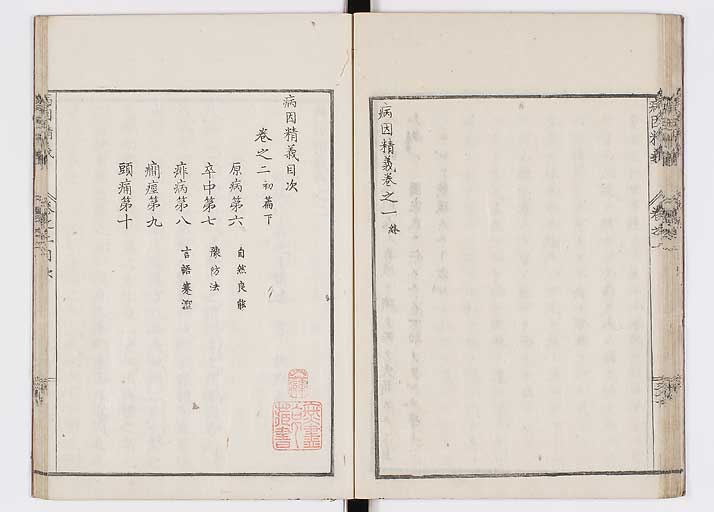 病因精義巻之一終
病因精義目次
巻之二 初篇下
原病第六 自然良能
卒中第七 豫防法
痱病第八 言語蹇澀
癇痙第九
頭痛第十
病因精義